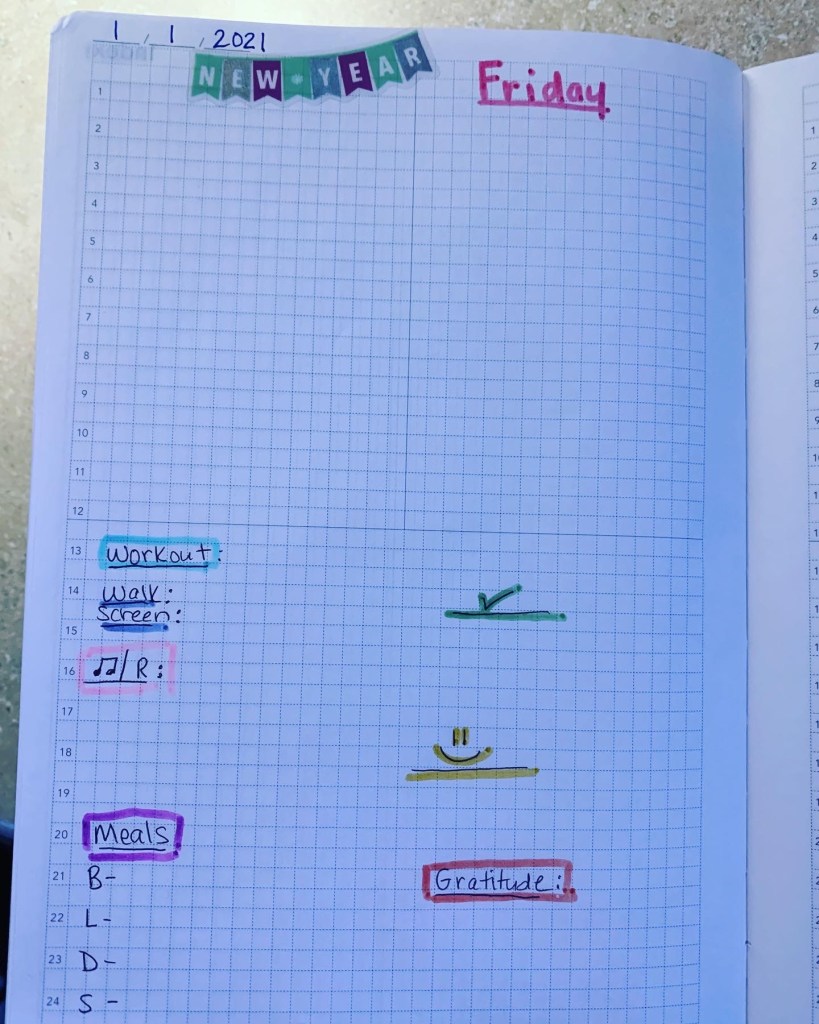 1 , 1 , 2021
NEW YEAR
Friday
1
2
3
4
5
6
7
8
9
10
11
12
13 Workout:
14 Walk:
Screen:
15
16 ♫/R:
17
18
19
20 Meals
21 B-
Gratitude:
22 L-
23 D-
24 S -